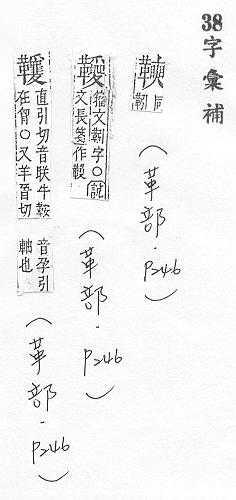 38字彙補
同靷
(革部.P246)
籀文靷字○說
文長箋作
(革部.P246)
直引切音眹牛鞍
在胷○又羊晉切
音孕引
軸也
(革部.P246)